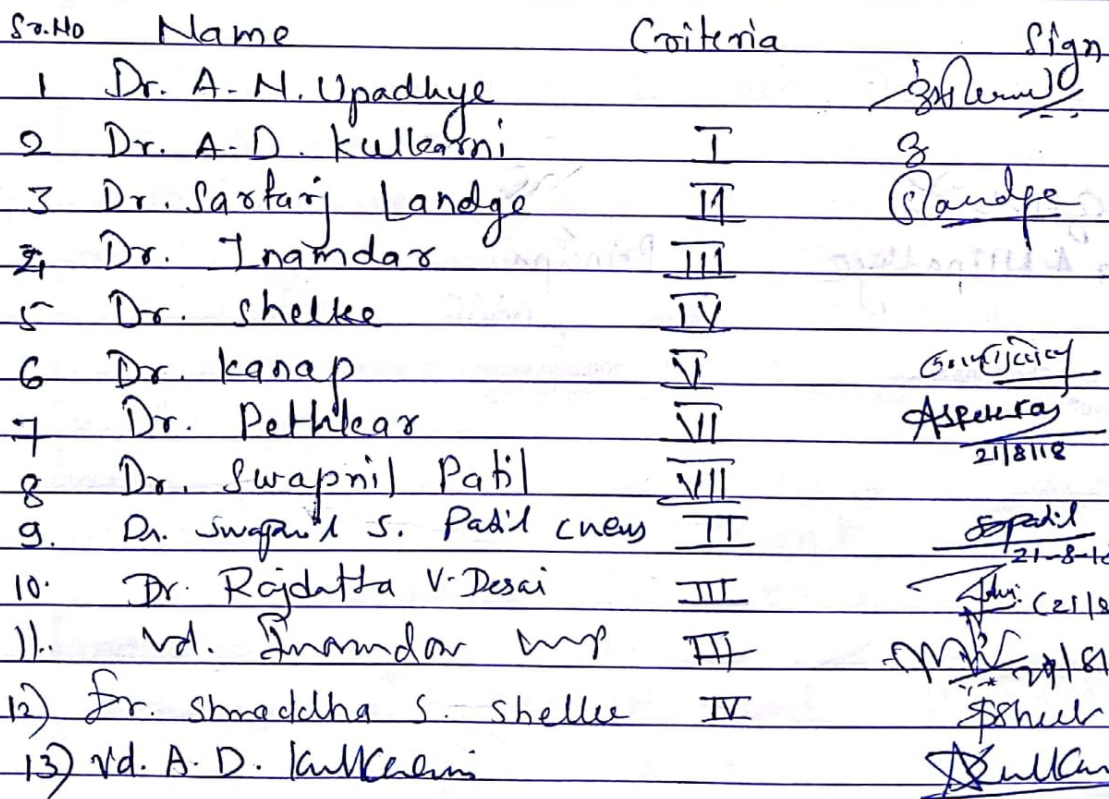 Sr.No Name Criteria Sign
1 Dr. A.N. Upadhye
2 Dr. A.D. Kulkarni I
3 Dr. Sartaj Landge II Slandge
4 Dr. Inamdar III
5 Dr. Shelke IV
6 Dr. Kanap V
7 Dr. Pethkar VI
21/8/18
8 Dr. Swapnil Patil VII
9. Dr. Swapnil S. Patil II SSpatil
21-8-18
10. Dr. Rajdatta V. Desai III (21/8
11. Vd. Inamdar III 21/81
12) Dr. Shraddha S. Shelke IV
13) Vd. A. D. Kulkarni